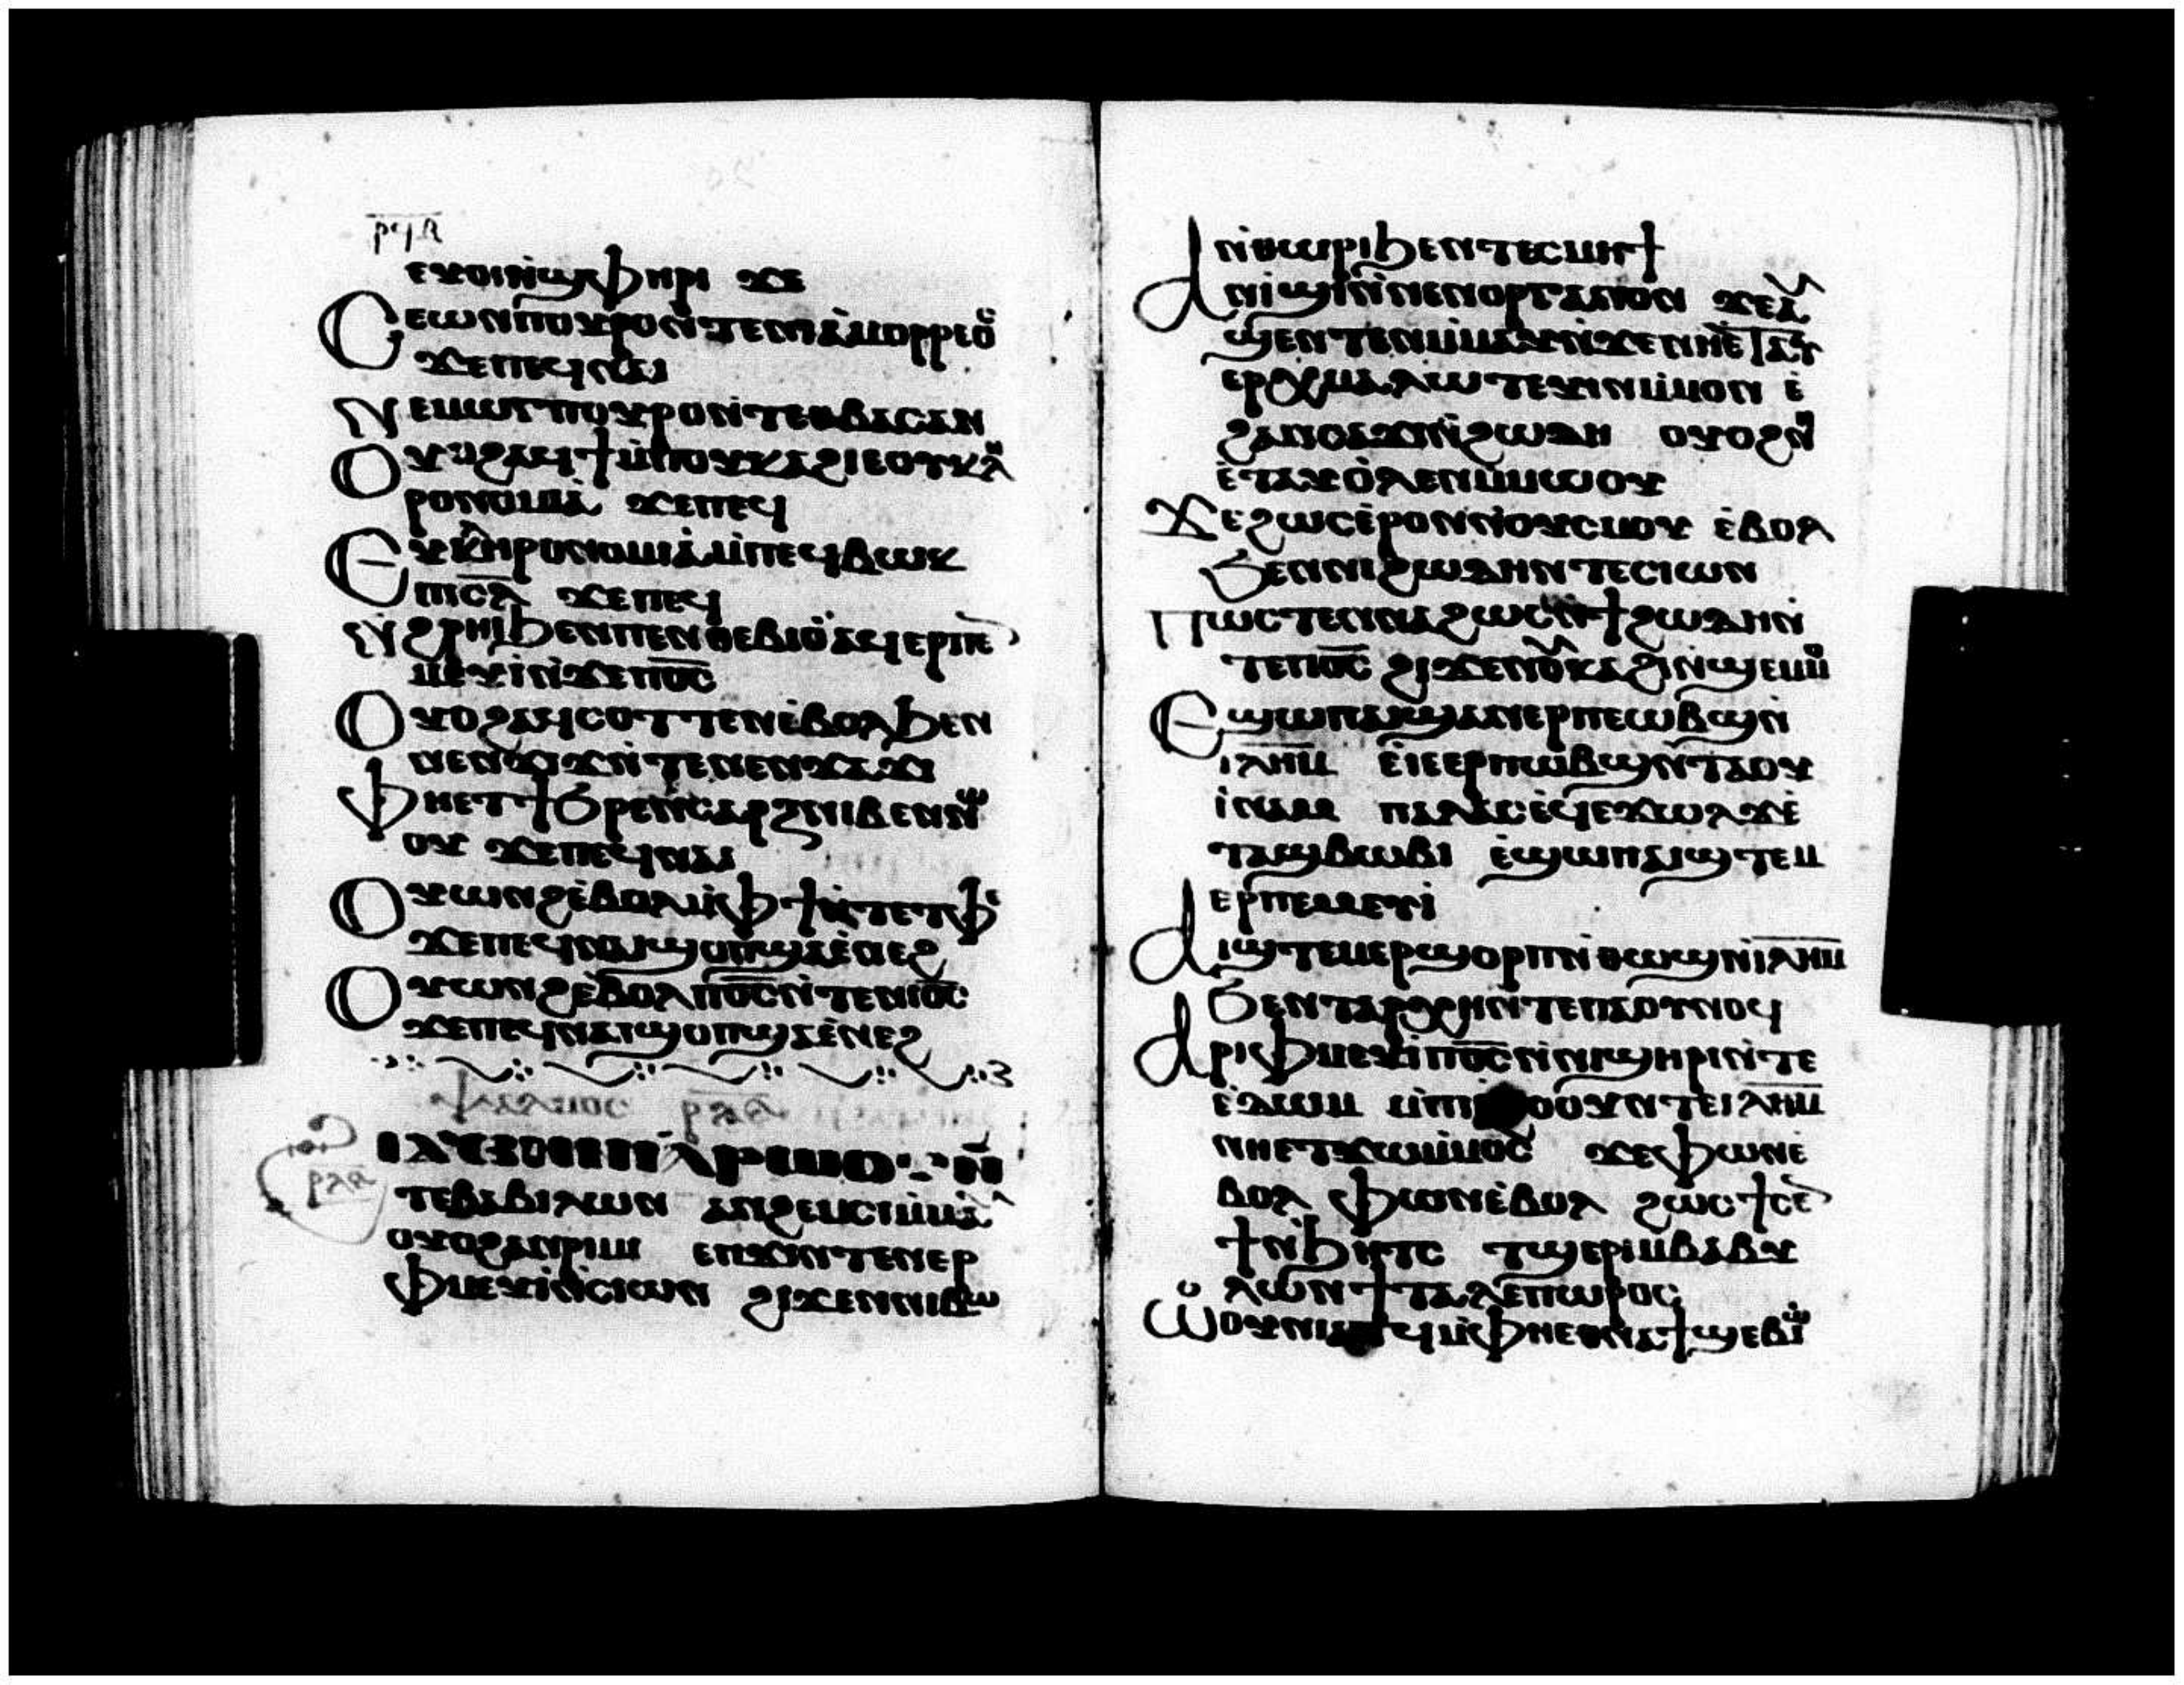 ⲣϥⲁ
ⲉⲩⲟⲓⲛ̀ϣⲫⲏⲣⲓ ϫⲉ
Ⲥⲉⲱⲛ ⲡⲟⲩⲣⲟ ⲛ̀ⲧⲉ ⲛⲓⲁⲙⲟⲣⲣⲉⲟⲥ
ϫⲉ ⲡⲉϥⲛⲁⲓ
Ⲛⲉⲙ ⲱⲅ ⲡⲟⲩⲣⲟ ⲛ̀ⲧⲉ ⲑⲃⲁⲥⲁⲛ
Ⲟⲩⲟϩ ⲁϥϯ ⲙ̀ⲡⲟⲩⲕⲁϩⲓ ⲉⲟⲩⲕⲗⲏ
ⲣⲟⲛⲟⲙⲓⲁ̀ ϫⲉ ⲡⲉϥ
Ⲉⲩⲕⲗⲏⲣⲟⲛⲟⲙⲓⲁ ⲙ̀ⲡⲉϥⲃⲱⲕ
ⲡⲓⲥ̅ⲗ̅ ϫⲉ ⲡⲉϥ
Ⲛ̀ϩⲣⲏⲓ ϧⲉⲛ ⲡⲉⲛⲑⲉⲃⲓⲟ̀ ⲁϥⲉⲣⲡⲉⲛ
ⲙⲉⲩⲓ̀ ⲛ̀ϫⲉ ⲡⲟ̅ⲥ̅
Ⲟⲩⲟϩ ⲁϥⲥⲟⲧⲧⲉⲛ ⲉ̀ⲃⲟⲗ ϧⲉⲛ
ⲛⲉⲛϫⲓϫ ⲛ̀ⲧⲉ ⲛⲉⲛϫⲁϫⲓ
Ⲫⲏⲉⲧϯϧⲣⲉ ⲛ̀ⲥⲁⲣⲝ ⲛⲓⲃⲉⲛ ⲛ̀ⲱ
ⲟⲩ ϫⲉ ⲡⲉϥⲛⲁⲓ
Ⲟⲩⲱⲛϩ ⲉ̀ⲃⲟⲗ ⲙ̀ⲫϯ ⲛ̀ⲧⲉ ⲧⲫⲉ
ϫⲉ ⲡⲉϥⲛⲁⲓ ϣⲟⲡ ϣⲁ ⲉ̀ⲛⲉϩ
Ⲟⲩⲱⲛϩ ⲉ̀ⲃⲟⲗ ⲡⲟ̅ⲥ̅ ⲛ̀ⲧⲉ ⲛⲓⲟ̅ⲥ̅
ϫⲉ ⲡⲉϥⲛⲁⲓ ϣⲟⲡ ϣⲁ ⲉ̀ⲛⲉϩ
ⲯⲁⲗⲙⲟⲥ ⲣⲗⲋ
ⲣⲗⲋ
ⲧⲉ ⲃⲁⲃⲓⲗⲱⲛ ⲁⲛϩⲉⲙⲥⲓ ⲙ̀ⲙⲁⲩ
ⲟⲩⲟϩ ⲁⲛⲣⲓⲙⲓ ⲉⲡϫⲓⲛⲧⲉⲛⲉⲣ
ⲫⲙⲉⲩⲓ̀ ⲛ̀ⲥⲓⲱⲛ ϩⲓϫⲉⲛ ⲛⲓⲃⲱ
Ⲁⲛⲓ̀ ⲑⲱⲣⲓ ϧⲉⲛ ⲧⲉⲥⲙⲏϯ
Ⲁⲛⲓ̀ϣⲓ ⲛ̀ⲛⲉⲛⲟⲣⲅⲁⲛⲟⲛ ϫⲉ ⲁⲩ
ϣⲉⲛⲧⲉⲛ ⲙ̀ⲙⲁⲩ ⲛ̀ϫⲉ ⲛⲏⲉ̀ⲧⲁⲩ
ⲉⲣⲉⲭⲙⲁⲗⲱⲧⲉⲩⲓⲛ ⲙ̀ⲙⲟⲛ ⲉ̀
ϩⲁⲛⲥⲁϫⲓ ⲛ̀ϩⲱⲇⲏ ⲟⲩⲟϩ ⲛⲏ
ⲉ̀ⲧⲁⲩⲟ̀ⲗⲉⲛ ⲙ̀ⲙⲱⲟⲩ
Ϫⲉ ϩⲱⲥ ⲉ̀ⲣⲟⲛ ⲛ̀ⲟⲩⲥⲙⲟⲩ ⲉ̀ⲃⲟⲗ
ϧⲉⲛ ⲛⲓϩⲱⲇⲏ ⲛ̀ⲧⲉ ⲥⲓⲱⲛ
Ⲡⲱⲥ ⲧⲉⲛⲛⲁϩⲱⲥ ⲛ̀ϯϩⲱⲇⲏ ⲛ̀
ⲧⲉ ⲡⲟ̅ⲥ̅ ϩⲓϫⲉⲛ ⲟⲩⲕⲁϩⲓ ⲛ̀ϣⲉⲙⲙⲟ
Ⲉϣⲱⲡ ⲁⲓϣⲁⲛⲉⲣⲡⲉⲱⲃϣ ⲛ̀
ⲓ̅ⲗ̅ⲏ̅ⲙ̅ ⲉⲓⲉⲉⲣⲡⲱⲃϣ ⲛ̀ⲧⲁⲟⲩ
ⲓ̀ⲛⲁⲙ ⲡⲁⲗⲁⲥ ⲉ̀ϥⲉϫⲱⲗϫ ⲉ̀
ⲧⲁϣⲃⲱⲃⲓ ⲉ̀ϣⲱⲡ ⲁⲓϣⲧⲉⲙ
ⲉⲣⲡⲉⲙⲉⲩⲓ
Ⲁⲓϣⲧⲉⲙⲉⲣϣⲟⲣⲡ ⲛ̀ⲑⲱⲕϣ ⲛ̀ⲓ̅ⲗ̅ⲏ̅ⲙ̅
ϧⲉⲛ ⲧⲁⲣⲭⲏ ⲛ̀ⲧⲉ ⲡⲁⲟⲩⲛⲟϥ
Ⲁⲣⲓⲫⲙⲉⲩⲓ̀ ⲡⲟ̅ⲥ̅ ⲛ̀ⲛⲓϣⲏⲣⲓ ⲛ̀ⲧⲉ
ⲉⲇⲱⲙ ⲙ̀ⲡⲓⲉϩⲟⲟⲩ ⲛ̀ⲧⲉ ⲓ̅ⲗ̅ⲏ̅ⲙ̅
ⲛⲏⲉⲧϫⲱ ⲙ̀ⲙⲟⲥ ϫⲉ ⲫⲱⲛ ⲉ̀
ⲃⲟⲗ ⲫⲱⲛ ⲉ̀ⲃⲟⲗ ϩⲱⲥ ϯⲥⲉⲛ
ϯ ⲛ̀ϧⲏⲧⲥ ⲧϣⲉⲣⲓ ⲙ̀ⲃⲁⲃⲩ
ⲗⲱⲛ ϯⲧⲁⲗⲉⲡⲱⲣⲟⲥ
Ⲱⲟⲩⲛⲓⲁⲧϥ ⲙ̀ⲫⲏⲉⲑⲛⲁϯϣⲉⲃⲓⲱ